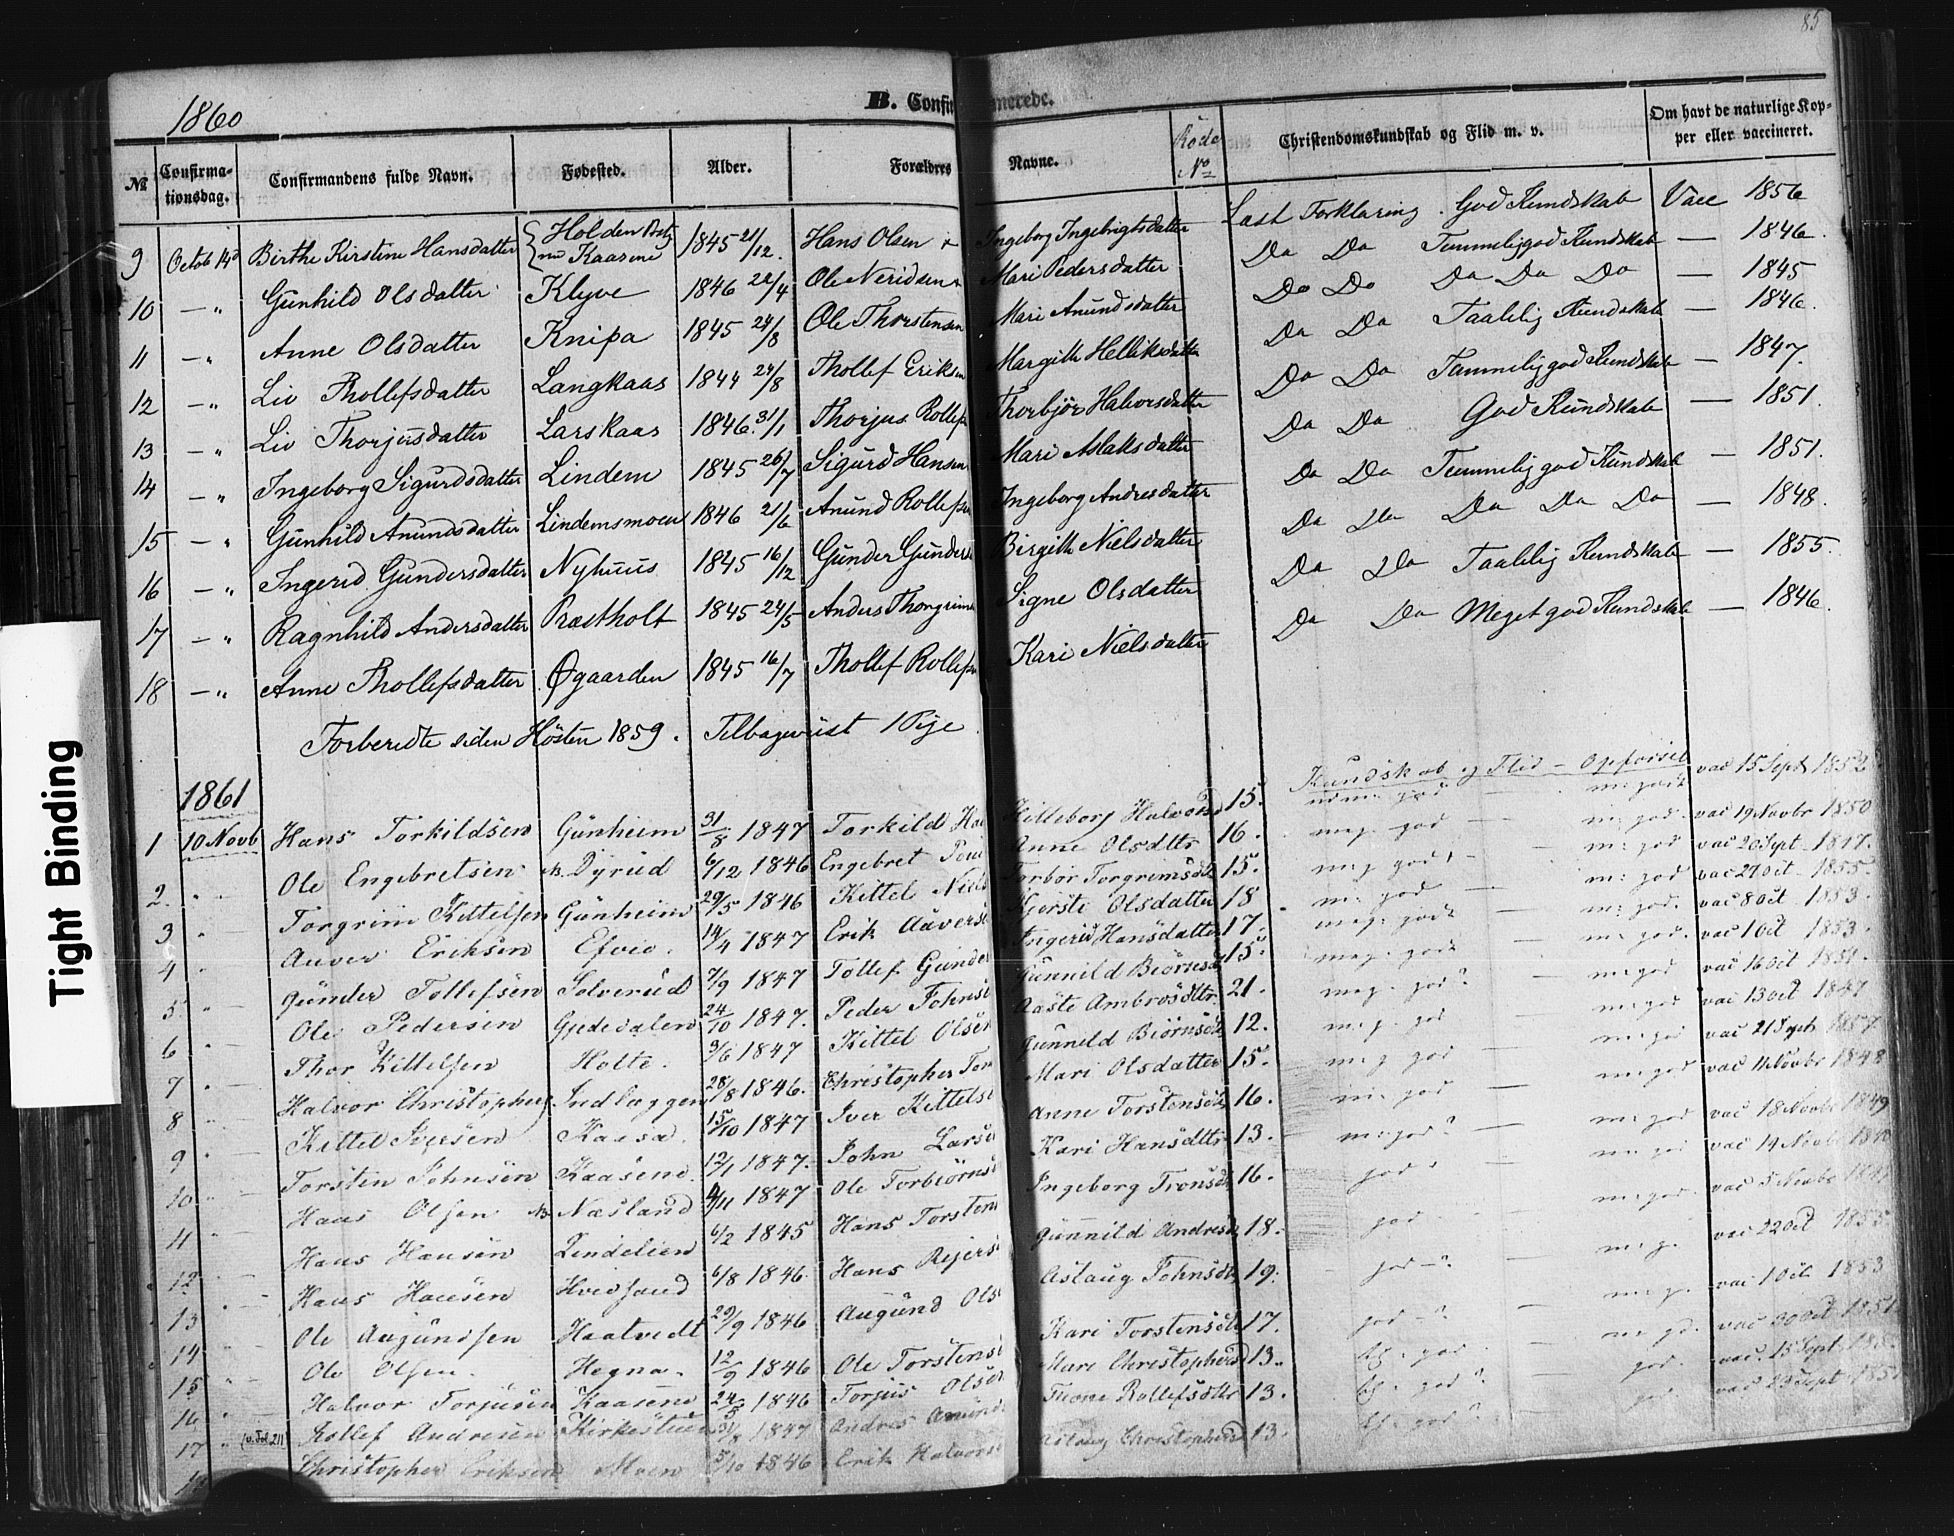 85
1860
B. Confirmerede.
№ Confirmationsdag. Confirmandens fulde Navn. Fødested. Alder. Forældres Navne. Rode No Christendomskundskab og Flid m. v. Om havt de naturlige Kopper eller vaccineret.
9 Octob 14d Birthe Kirstine Hansdatter Holden nu Kaasene 1845 21/12. Hans Olsen & Ingeborg Ingebrigtsdatter Last Forklaring. God Kundskab Vacc 1856
10 — „ Gunhild Olsdatter Klyve 1846 22/4 Ole Neridsen & Mari Pedersdatter Do Do Temmelig god Kundskab — 1846.
11 — „ Anne Olsdatter Knipa 1845 24/8 Ole Thorstensen Mari Anundsdatter Do Do Do Do Do — 1845
12 — „ Liv Thollefsdatter Langkaas 1844 24/8 Thollef Eriksen Margith Helliksdatter Do Do Taalelig Kundskab — 1846.
13 — „ Liv Thorjusdatter Larskaas 1846. 31/1 Thorjus Rollefsen Thorbjør Halvorsdatter Do Do Temmelig god Kundskab — 1847.
14 — „ Ingeborg Sigurdsdatter Lindem 1845 26/7 Sigurd Hansen Mari Aslaksdatter Do Do God Kundskab — 1851.
15 — „ Gunhild Anundsdatter Lindemsmoen 1846 21/6 Anund Rollefsen Ingeborg Andresdatter Do Do Temmelig god Kundskab — 1851.
16 — „ Ingerid Gundersdatter Nyhuus 1845 16/12 Gunder Gunders Birgitte Nielsdatter Do Do Do Do Do — 1848.
17 — „ Ragnhild Andersdatter Præstholt 1845 24/5 Anders Thorgrims Signe Olsdatter Do Do Taalelig Kundskab — 1855.
18 — „ Anne Thollefsdatter Øgaarden 1845 16/7 Thollef Rollefsen Kari Nielsdatter Do Do Meget god Kundskab — 1846.
Forberedte siden Høsten 1859. Tilbageviist 1 Pige
1861 Kundskab og Flid — Opførsel
1 10 Novb Hans Torkildsen Gunheim 31/8 1847 Torkild Hilleborg Halvorsd 15. meg god m: god vac 15 Sept 1852
2. Ole Engebretsen Dyrud 6/12 1846 Engebret Anne Olsdtr 16. meg god m: god. vac 19 Novbr 1850
3 Torgrim Kittelsen Gunheim 29/5 1846 Kittel Niels Torbor Torgrimsdt 15. meg god m: god vac 20 Sept 1847.
4 Auver Eriksen Efvio. 14/4 1847 Erik Auvers Kjersti Olsdatter 18 m: god m: god vac 27 Oct 1855.
5 Gunder Tollefsen Solverud 7/9 1847 Tollef Gunder Ingerid Hansdatter 17. meg: god m: god. vac 8 Oct 1853.
6 Ole Pedersen Gjededalen 24/10 1847. Peder Johns Gunnild Biörnsd 15. meg. god m: god. vac 1 Oct 1853.
7 Thor Kittelsen Holte. 3/6 1847 Kittel Olsen Aaste Ambrosdtr. 21. meg. god m: god vac 16 Oct 1851.
8 Halvor Christophers Indlæggen 28/8 1846. Christopher Tor Gunnild Biörnsd 12. meg. god m: god vac 13 Oct 1847
9 Kittel Iversen Kaasa. 15/10 1847 Iver Kittels Mari Olsdatter 15. meg god m: god vac 21 Sept 1857.
10 Torsten Johnsen Kaasene. 12/1 1847. John Lars Anne Torstensdt 16. m: god m: god vac 11 Novbr 1848
11 Hans Olsen Næsland 4/11 1847 Ole Torbiörns Kari Hansdtr 13. m: god m: god vac 18 Novbr 1849
12 Hans Hansen Lindelien 6/2 1845 Hans Torstens Ingeborg Tronsd 16. god m: god. vac 14 Novbr
13 Hans Hansen Hvidsand 6/8 1846. Hans Rejers Gunnild Andresd 18. god m: god vac 5 Novbr
14 Ole Augundsen Haatvedt 29/9 1846 Augund Ols Aslaug Johnsdt 19. god m: g. vac 22 Oct 1853.
15 Ole Olsen. Hegna. 12/9 1846 Ole Torstens Kari Torstensdt 17. god m: g. vac 1 Oct 1853
16 Halvor Torjusen Kaasene 24/3 1846 Torjus Olsen Mari Christophersd 13. god m: god. vac Oct 1851
17 (v. Fol 211) Rollef Andresen 31/8 1847 Andres Anunds Thone Rollefsdtr 13. god god. vac. 15 Sept
Christopher Eriksen Moen 5/10 1846 Erik Halvors Aslaug Christophersd 13. god vac 23 Sept
Tight Binding